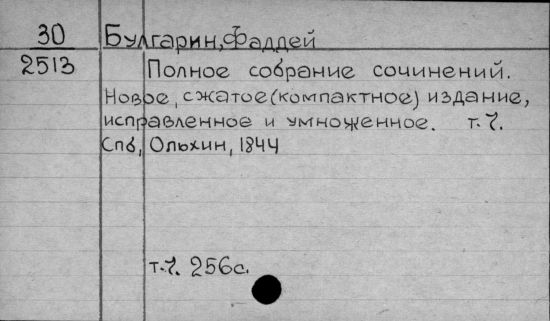 30 Булгарин, Фаддей
2513 Полное собрание сочинений.
Новое, сжатое (компактное) издание,
исправленное и умноженное. т.7.
Спб, Ольхин, 1844
т.7. 256с.